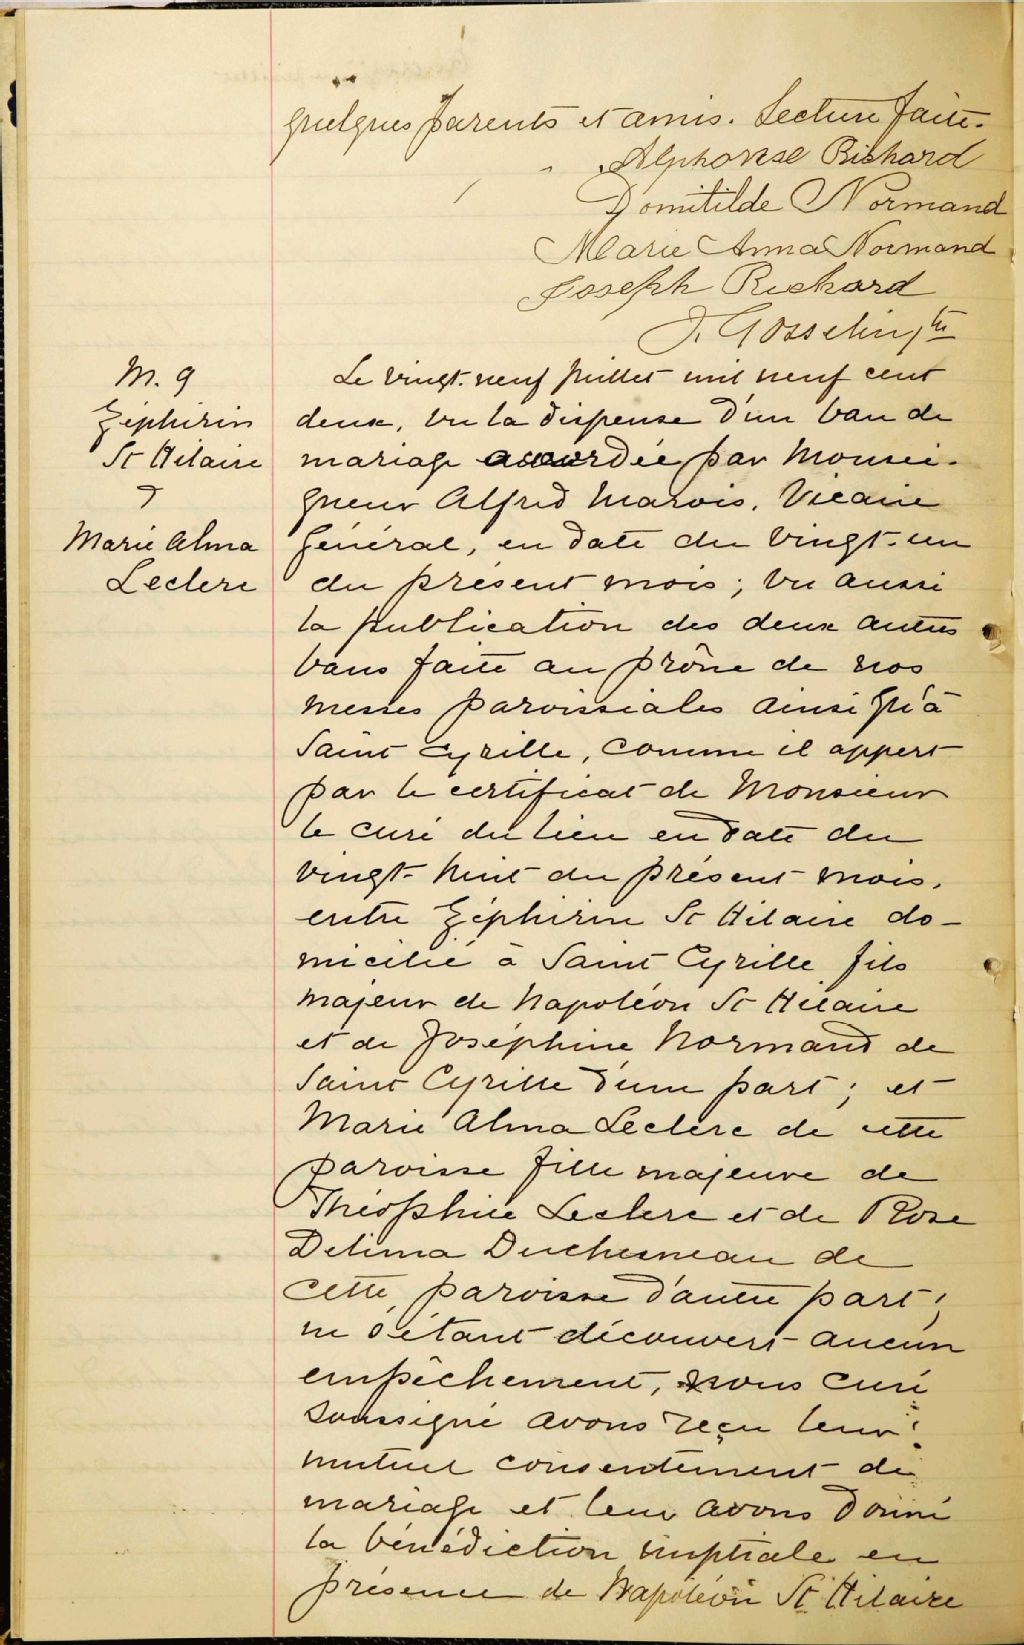 quelques parents et amis. Lecture faite.
Alphonse Richard
Domitilde Normand
Marie Anna Normand
Joseph Richard
J. Gosselin, ptre
M. 9
Zéphirin
St Hilaire
&
Marie Alma
Leclerc
Le vingt-neuf juillet mil neuf cent
deux, vu la dispense d'un ban de
mariage accordée par Monsei-
gneur Alfred Marois, Vicaire
Général, en date du vingt-un
du présent mois; vu aussi
la publication des deux autres
bans faite au prône de nos
messes paroissiales ainsi qu'à
Saint Cyrille, comme il appert
par le certificat de Monsieur
le curé du lieu en date du
vingt-huit du présent mois,
entre Zéphirin St Hilaire do-
micilié à Saint Cyrille fils
majeur de Napoléon St Hilaire
et de Joséphine Normand de
Saint Cyrille d'une part; et
Marie Alma Leclerc de cette
paroisse fille majeure de
Théophile Leclerc et de Rose
Delima Duchesneau de
cette paroisse d'autre part;
ne s'étant découvert aucun
empêchement, nous curé
soussigné avons reçu leur
mutuel consentement de
mariage et leur avons donné
la bénédiction nuptiale en
présence de Napoléon St Hilaire